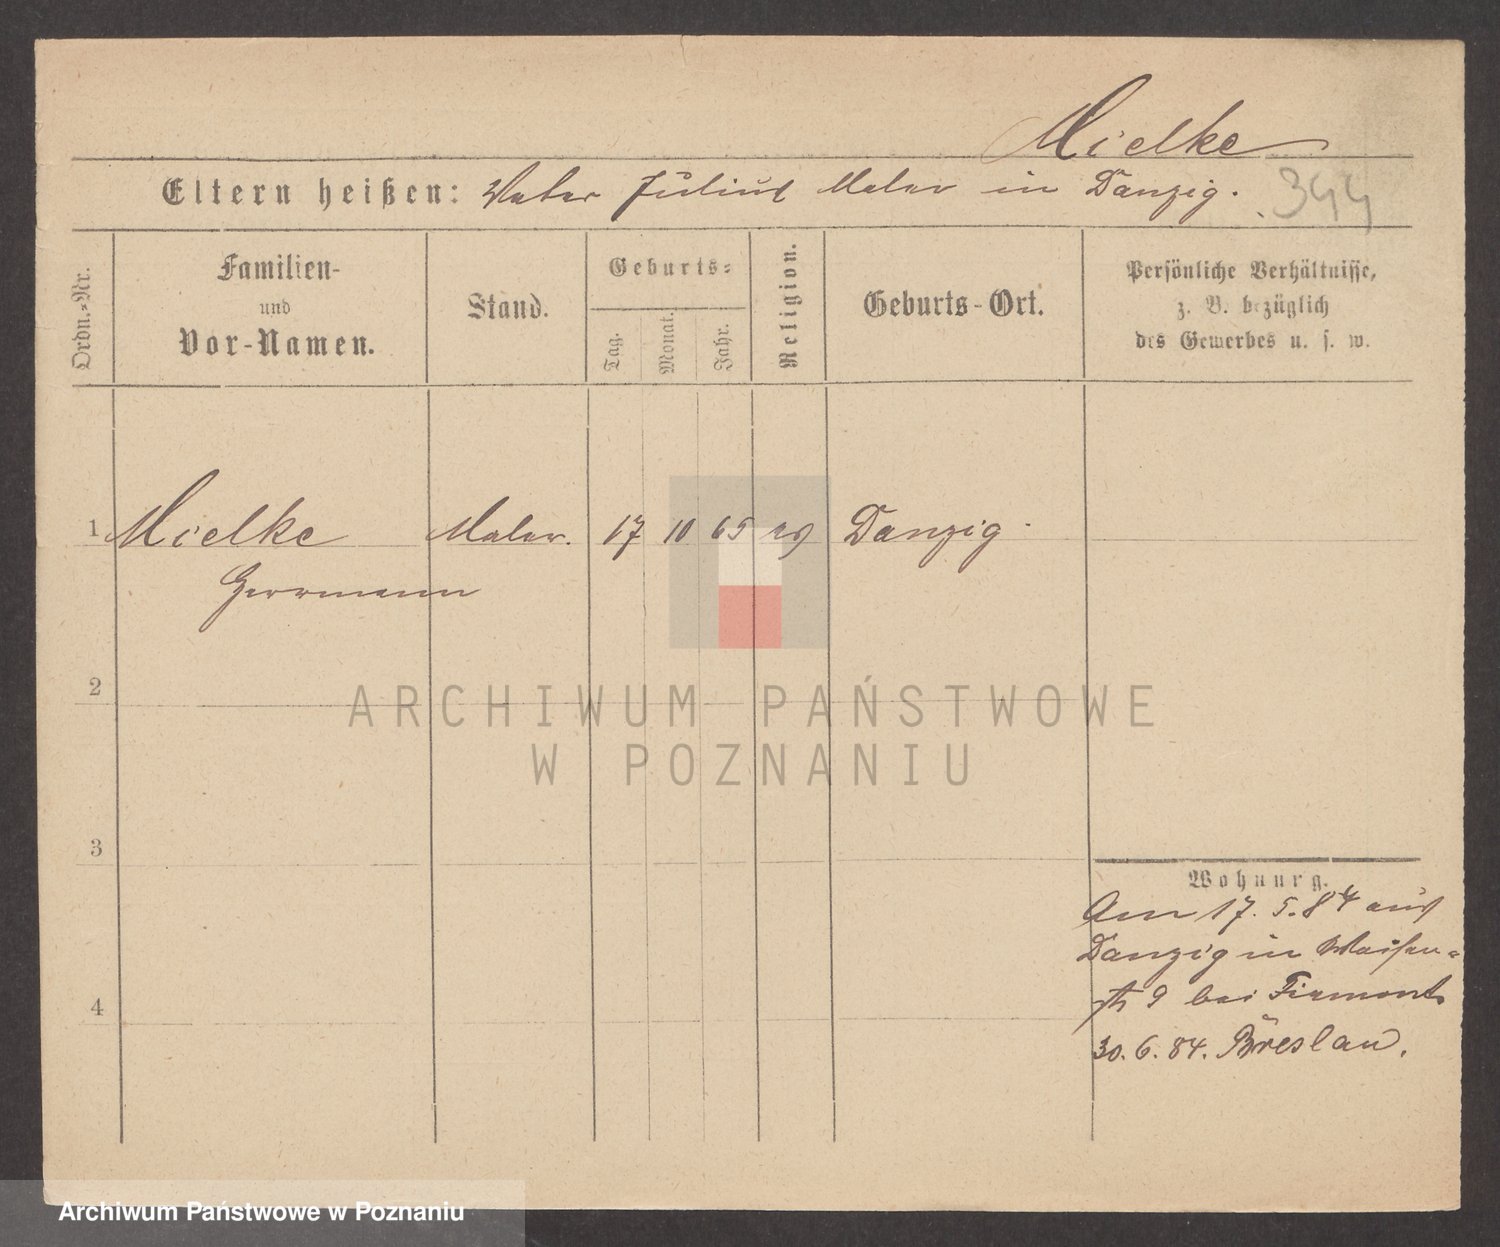 Mielke
Eltern heißen: Vater Julius Maler in Danzig.
344
Ordn.-Nr.
Familien-
und
Vor-Namen.
Stand.
Geburts-
Tag.
Monat.
Jahr.
Religion.
Geburts-Ort.
Persönliche Verhältnisse,
z. B. bezüglich
des Gewerbes u. s. w.
1 Mielke Maler. 17 10 65 ev Danzig.
Herrmann
2
3
4
Wohnung.
Am 17. 5. 84 aus
Danzig in Waisen-
str 9 bei
30. 6. 84. Breslau.
ARCHIWUM PAŃSTWOWE
W POZNANIU
Archiwum Państwowe w Poznaniu